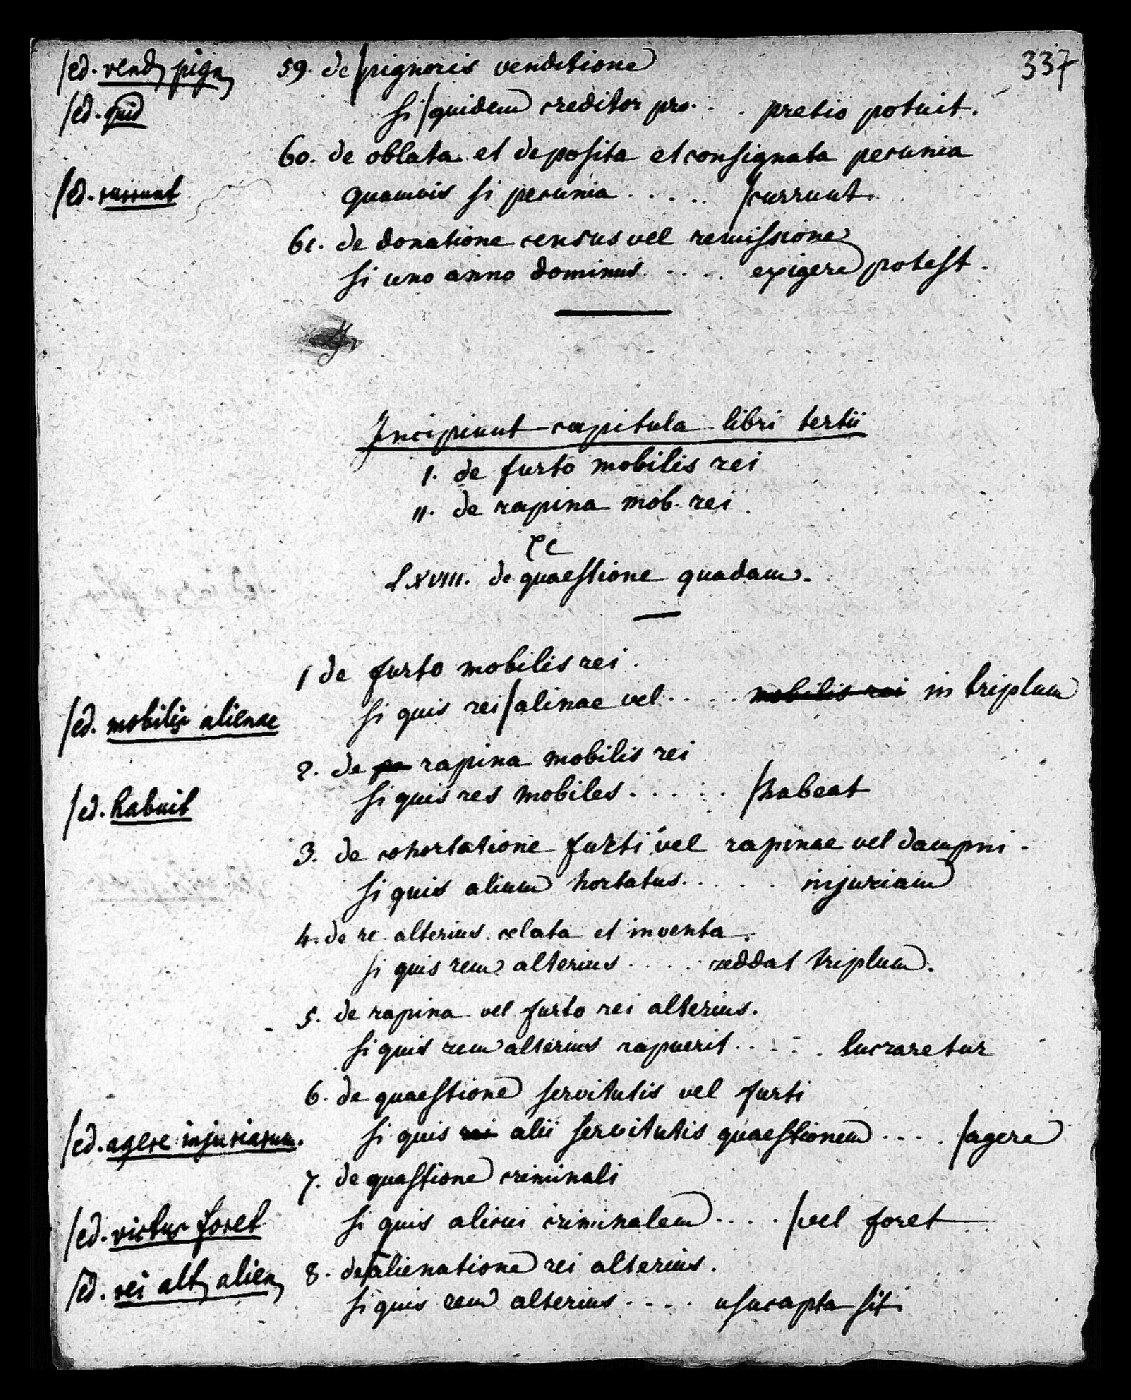 337
/ed. vend, pign, 59. de/pignoris venditione
/ed. quid si/quidem creditor pro. . . pretio potuit.
60. de oblata et deposita et consignata pecunia
/ed. currunt quamvis si pecunia . . . . . /currunt.
61. de donatione census vel remissione
si uno anno dominus . . . . exigere potest.
Incipiunt capitula libri tertii
I. de furto mobilis rei
II. de rapina mob. rei
LXVIII. de quaestione quadam.
1 de furto mobilis rei.
/ed. mobilis alienae si quis rei/alinae vel . . . . mobilis rei in triplum
2. de rapina mobilis rei
/ed. habuit si quis res mobiles . . . . . /habeat
3. de cohortatione furti vel rapinae vel dampni.
si quis alium hortatus. . . . . injuriam
4. de re alterius celata et inventa.
si quis rem alterius . . . . reddat triplum.
5. de rapina vel furto rei alterius.
si quis rem alterius rapuerit . . . . . lucraretur
6. de quaestione servitutis vel furti
/ed. agere injuriarum. si quis rei alii servitutis quaestionem . . . . /agere
7. de quaestione criminali
/ed. victus foret si quis alicui criminalem . . . . /vel foret
/ed. rei alt, alien, 8. de/alienatione rei alterius.
si quis rem alterius . . . . usucapta sit.